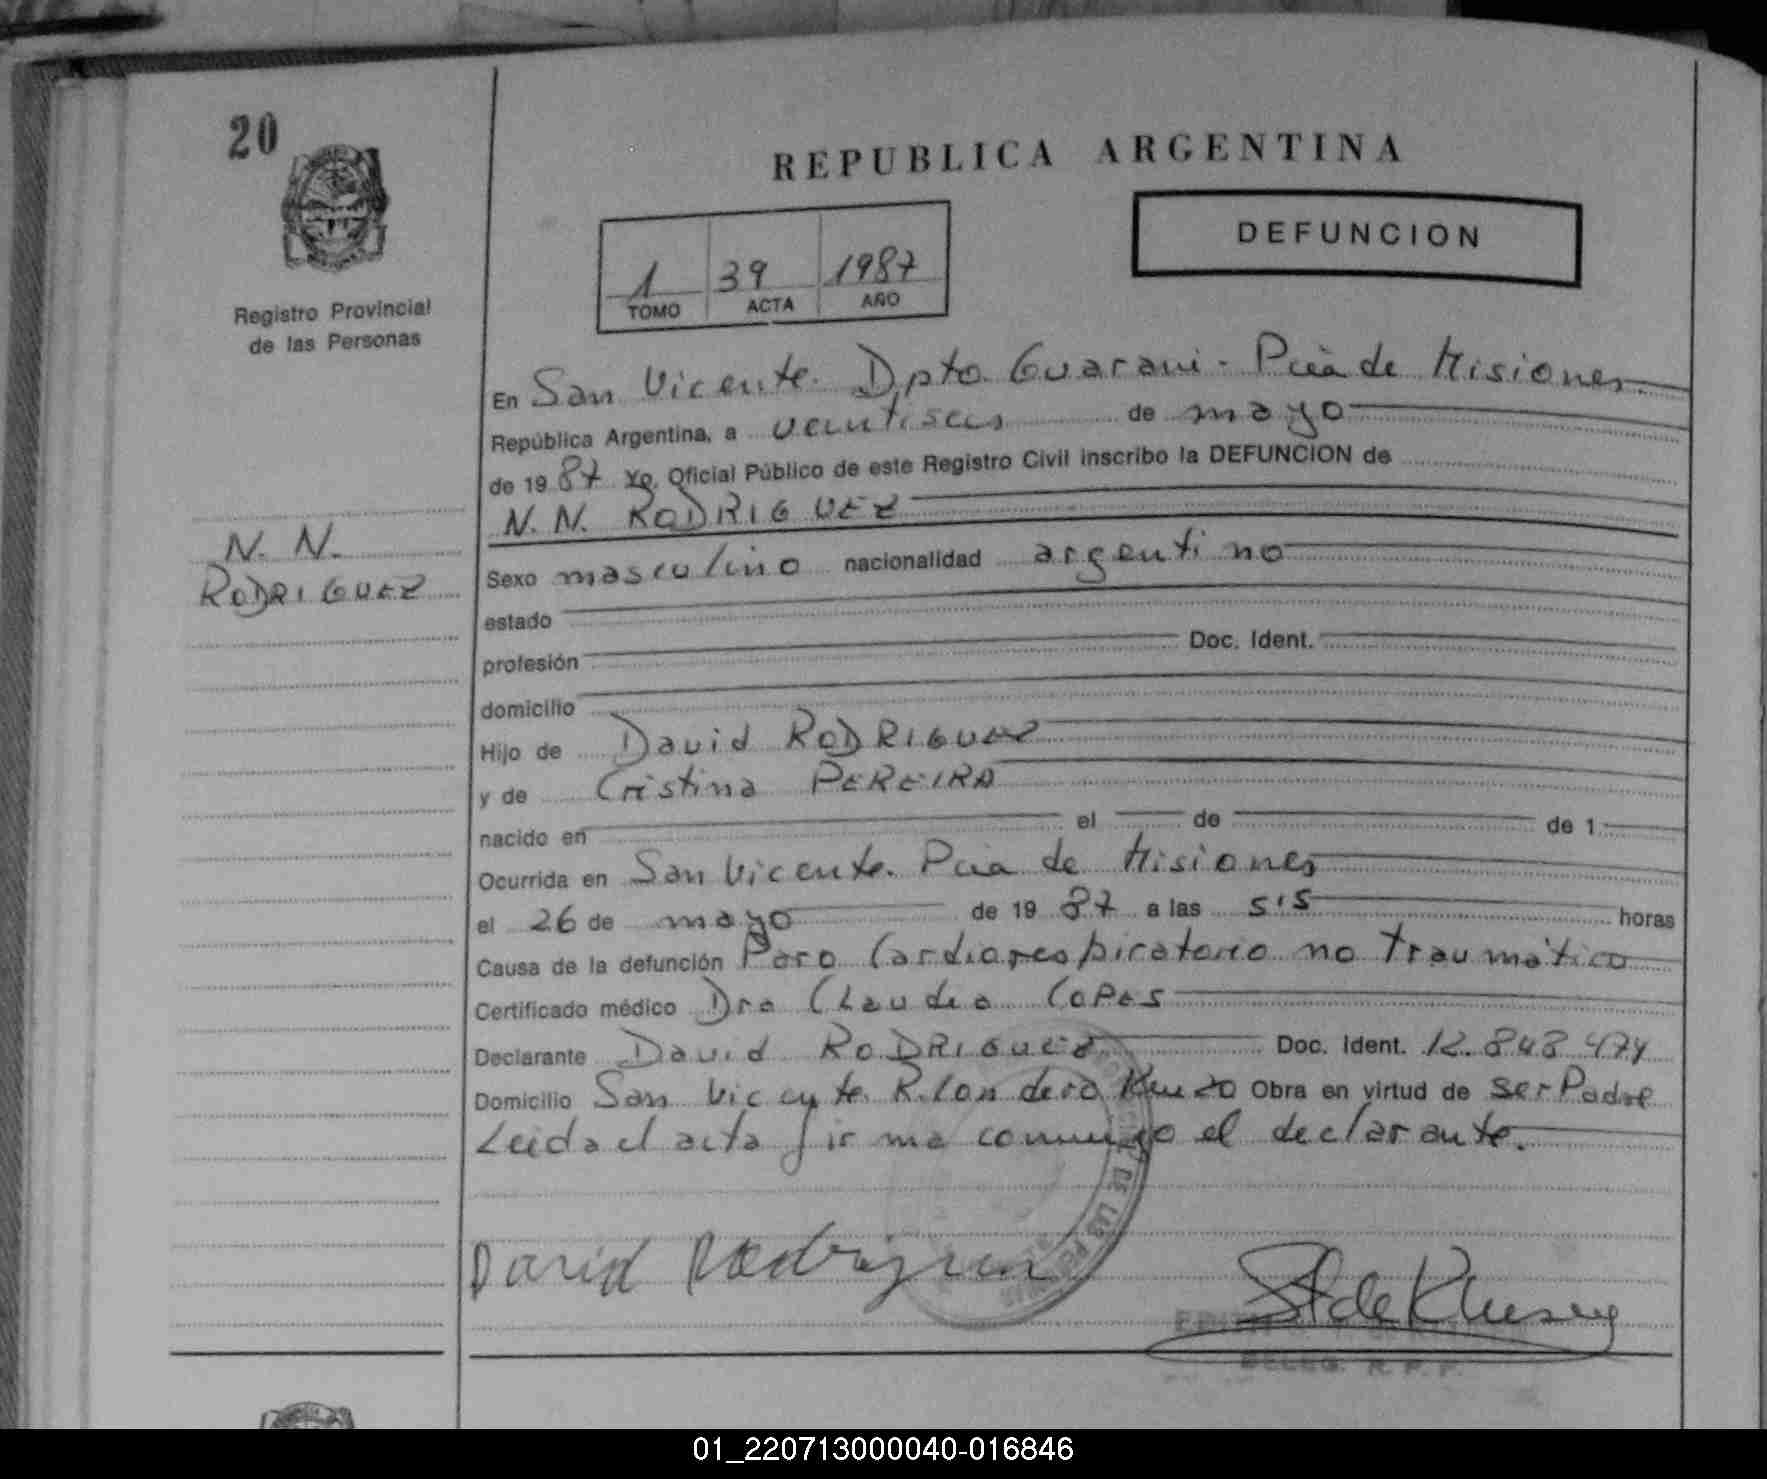 20
REPUBLICA ARGENTINA
DEFUNCION
1 39 1987
TOMO ACTA AÑO
Registro Provincial
de las Personas
En San Vicente. Dpto. Guarani - Pcia de Misiones.
República Argentina, a veintiseis de mayo
de 1987 Yo, Oficial Público de este Registro Civil inscribo la DEFUNCION de
N. N. RODRIGUEZ
N. N.
RODRIGUEZ
Sexo masculino nacionalidad argentino
estado
profesión Doc. Ident.
domicilio
Hijo de David RODRIGUEZ
y de Cristina PEREIRA
nacido en el de de 1
Ocurrida en San Vicente. Pcia de Misiones
el 26 de mayo de 1987 a las 5'5 horas
Causa de la defunción Paro Cardiorespiratorio no traumático
Certificado médico Dra Claudia COPES
Declarante David RODRIGUEZ Doc. Ident. 12.848.474
Domicilio San Vicente Obra en virtud de ser Padre
Leida el acta firma conmigo el declarante.
DE LAS PE
David Rodriguez
DELEG. R. P. P.
01_220713000040-016846